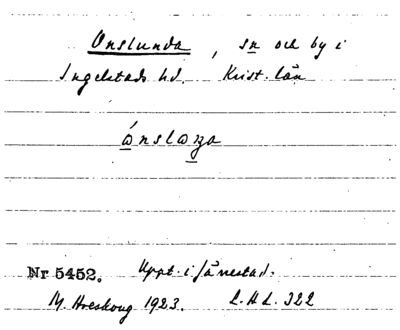 Onslunda, sn och by i
Ingelstads hd. Krist. län
Nr 5452. Uppt. i Jänestad.
M. Areskoug 1923. L.H.L. 322